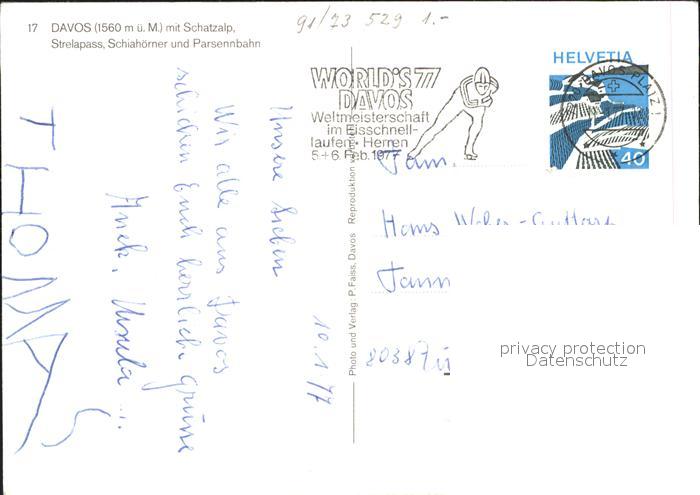 91/73 529 1.-
17 DAVOS (1560 m ü. M.) mit Schatzalp,
Strelapass, Schiahörner und Parsennbahn
WORLD'S 77
DAVOS
Weltmeisterschaft
im Eisschnell-
laufen, Herren
5.+6. Feb. 1977
HELVETIA
DAVOS PLATZ 1
40
10. 1. 77
Unsere Lieben
Wir alle aus Davos
schicken Euch herrliche Grüsse
Ursula
THOMAS
Photo und Verlag: P. Faiss, Davos Reproduktion verboten
Fam.
Hans Weber-
80387
privacy protection
Datenschutz